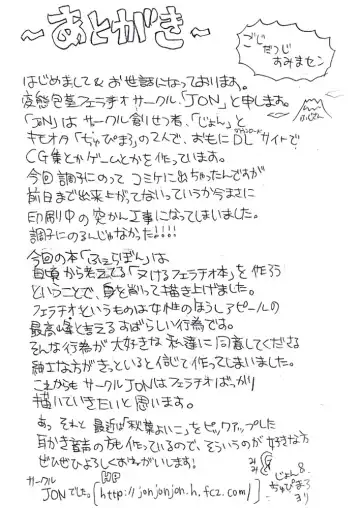 ～あとがき～
ごじ
だつじ
すみまセン
ふじさん
はじめまして&お世話になっております。
変態包茎フェラチオサークル「JON」と申します。
「JON」はサークル創せつ者、「じょん」と
キモオタ「ちゃぴまろ」の2人で、おもにDLサイトで
ダウンロード
CG集とかゲームとかを作っています。
今回調子にのってコミケに出ちゃったんですが
前日まで出来上がってないっていうか今まさに
印刷中の突かん工事になってしまいました。
調子にのるんじゃなかった!!!!
今回の本「ふぇらぼん」は
日頃から考えてる「ヌけるフェラチオ本」を作ろう
ということで、身を削って描き上げました。
フェラチオというものは女性のほうしアピールの
最高峰と言えるすばらしい行為です。
そんな行為が大好きな私達に同意してくださる
紳士な方がきっといると信じて作ってしまいました。
これからもサークルJONはフェラチオばっかり
描いていきたいと思います。
あっ それと最近は「秋葉よいこ」をピックアップした
耳かき音声の方も作っているので、そういうのが好きな方
ぜひぜひよろしくおねがいします!
サークル
JONでした。
HP
(http://jonjonjon.h.fc2.com/)
じょん&
ちゃぴまろ
より